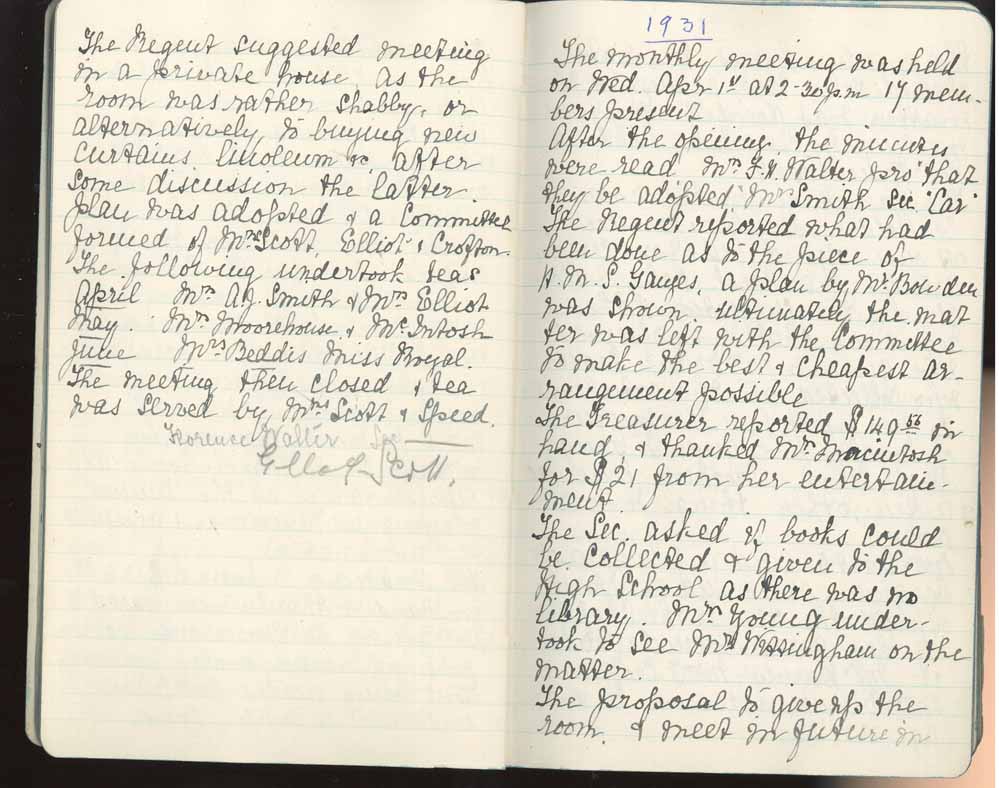 The Regent suggested meeting
in a private house, as the
room was rather shabby, or
alternatively to buying new
curtains, linoleum &c, after
some discussion the latter
plan was adopted & a Committee
formed of Mrs Scott, Elliot & Crofton.
The following undertook teas
April Mrs A.J. Smith & Mrs Elliot
May. Mrs Moorehouse & McIntosh
June Mrs Beddis Miss Royal.
The meeting then closed & tea
was served by Mrs Scott & Speed.
Florence Walter Sec
Scott.
1931
The monthly meeting was held
on Wed. Apr 1st at 2-30 p.m 17 mem-
bers present
After the opening, the minutes
were read Mrs F.H. Walter pro that
they be adopted, Mrs Smith sec. 'Car'
The Regent reported what had
been done as to the piece of
H.M.S. Ganges, a plan by Mr Bowden
was shown. ultimately the mat
ter was left with the Committee
to make the best & cheapest ar-
rangement possible
The Treasurer reported $149.56 in
hand, & thanked Mrs Macintosh
for $21 from her entertain-
ment.
The Sec. asked if books could
be collected & given to the
High School as there was no
library. Mrs Young under-
took to see Mrs on the
matter.
The proposal to give up the
room, & meet in future in